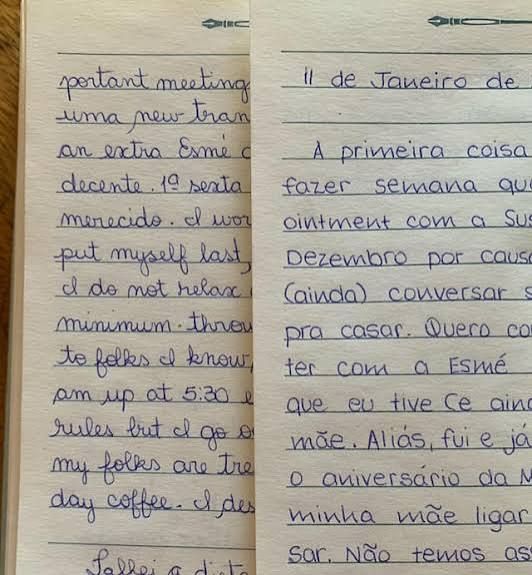 portant meeting
uma new tran
an extra Esmé c
decente. 1º sexta
merecido. I wor
put myself last,
I do not relax
minimum. throu
to folks I know,
am up at 5:30 e
rules but I go o
my folks are tre
day coffee. I des
Falhei a diet
11 de Janeiro de
A primeira coisa
fazer semana qu
ointment com a Sus
Dezembro por caus
(ainda) conversar s
pra casar. Quero co
ter com a Esmé
que eu tive (e ain
mãe. Aliás, fui e já
o aniversário da M
minha mãe ligar
sar. Não temos as